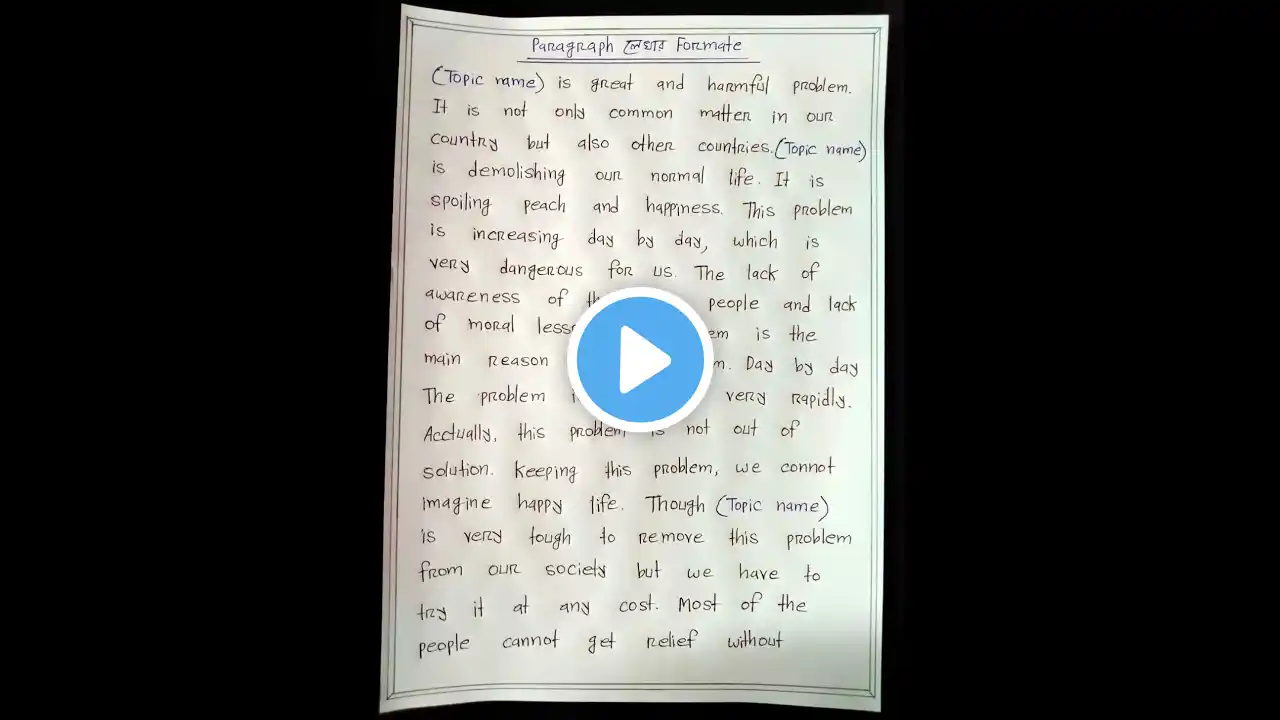 Paragraph লেখার Formate
(Topic name) is great and harmful problem.
It is not only common matter in our
country but also other countries. (Topic name)
is demolishing our normal life. It is
spoiling peach and happiness. This problem
is increasing day by day, which is
very dangerous for us. The lack of
awareness of people and lack
of moral is the
main reason Day by day
The problem very rapidly.
Acctually, this problem is not out of
solution. Keeping this problem, we connot
imagine happy life. Though (Topic name)
is very tough to remove this problem
from our society but we have to
try it at any cost. Most of the
people cannot get relief without